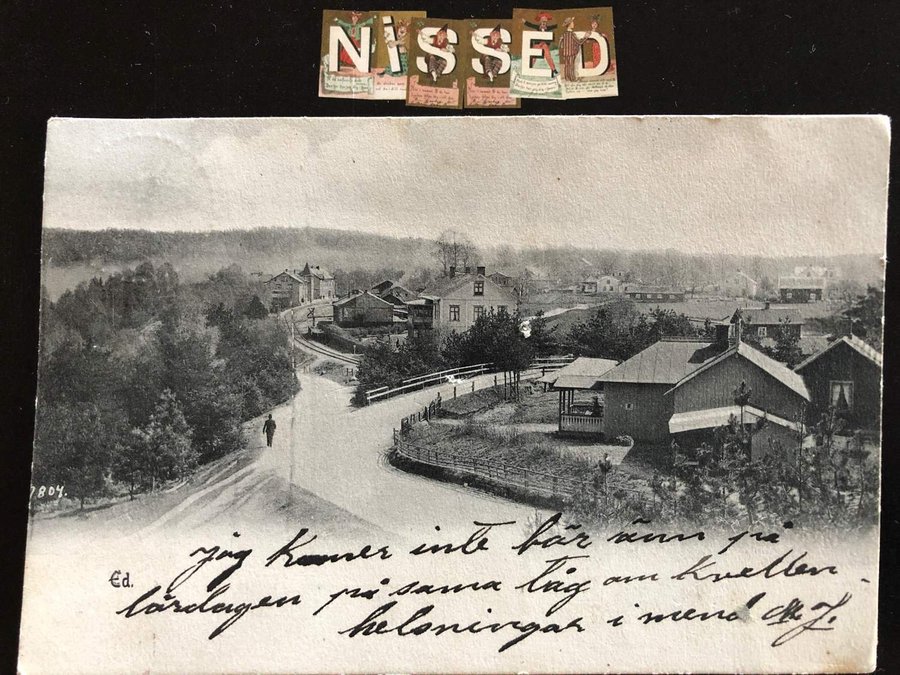 NiSSED
7804.
Ed.
jag Kommer inte bär änn på
lördagen på sama tåg om kvellen
helsningar i mend